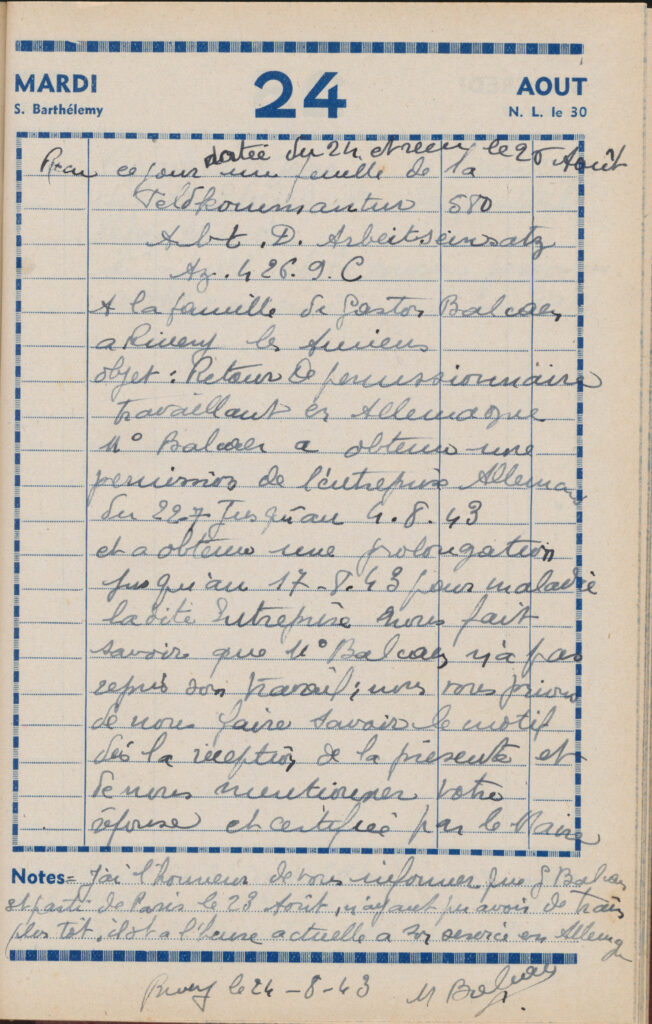 MARDI 24 AOUT
S. Barthélemy N. L. le 30
datée du 24 et reçu le 26 Août
ce jour une feuille de la
Feldkommantur 580
Abt. D. Arbeitseinsatz
Az. 426.9.C
A la famille de Gaston Balcaen
a Rivery les Amiens
objet : Retour De permissionnaire
travaillant en Allemagne
Mº Balcaen a obtenu une
permission de l'entreprise Alleman
du 22.7 Jusqu'au 4.8.43
et a obtenu une prolongation
jusqu'au 17-8.43 pour maladie
la dite Entreprise nous fait
savoir que Mº Balcaen n'a pas
repris son travail; nous vous prions
de nous faire savoir le motif
dès la réception de la présente et
de nous mentionner votre
réponse et certifiée par le Maire
Notes = J'ai l'honneur de vous informer que G Balcaen
est parti de Paris le 23 Août, n'ayant pu avoir de train
plus tôt, il est a l'heure actuelle a son service en Allemag
Rivery le 24-8-43 M Balcaen